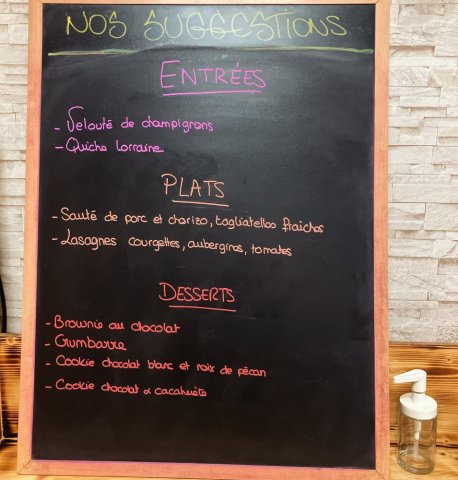 NOS SUGGESTIONS
ENTRÉES
- Velouté de champignons
- Quiche Lorraine
PLATS
- Sauté de porc et chorizo, tagliatelles fraîches
- Lasagnes courgettes, aubergines, tomates
DESSERTS
- Brownie au chocolat
- Crumbarre
- Cookie chocolat blanc et noix de pécan
- Cookie chocolat & cacahuète